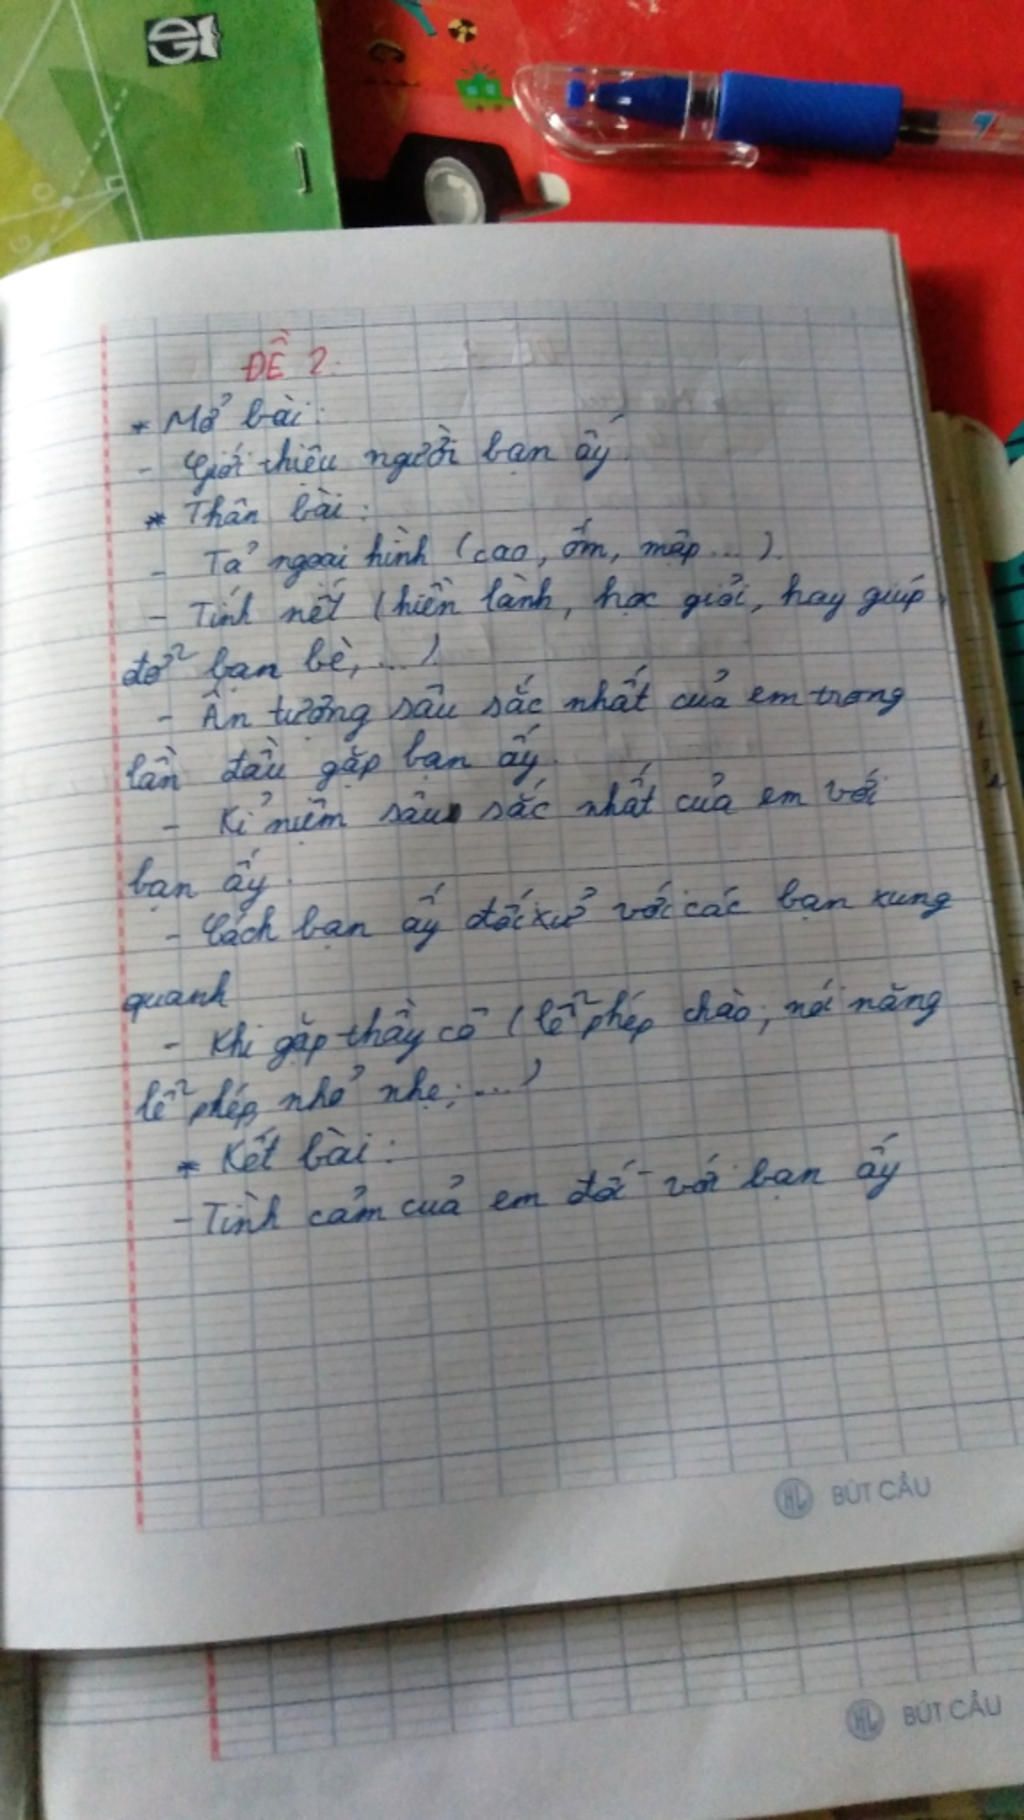 ĐỀ 2.
* Mở bài:
- Giới thiệu người bạn ấy.
* Thân bài:
- Tả ngoại hình (cao, ốm, mập...).
- Tính nết (hiền lành, học giỏi, hay giúp
đỡ bạn bè,...).
- Ấn tượng sâu sắc nhất của em trong
lần đầu gặp bạn ấy.
- Kỉ niệm sâu sắc nhất của em với
bạn ấy.
- Cách bạn ấy đối xử với các bạn xung
quanh
- Khi gặp thầy cô (lễ phép chào; nói năng
lễ phép, nhỏ nhẹ;...)
* Kết bài:
- Tình cảm của em đối với bạn ấy
HL BÚT CẦU
HL BÚT CẦU